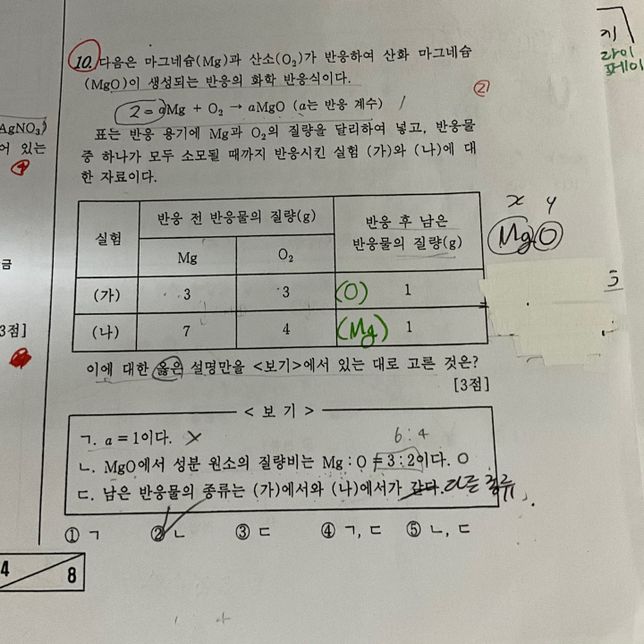 10. 다음은 마그네슘(Mg)과 산소(O₂)가 반응하여 산화 마그네슘
(MgO)이 생성되는 반응의 화학 반응식이다.
2= aMg + O₂ → aMgO (a는 반응 계수)
표는 반응 용기에 Mg과 O₂의 질량을 달리하여 넣고, 반응물
중 하나가 모두 소모될 때까지 반응시킨 실험 (가)와 (나)에 대
한 자료이다.
실험 반응 전 반응물의 질량(g) 반응 후 남은
반응물의 질량(g)
Mg O₂
(가) 3 3 (O) 1
(나) 7 4 (Mg) 1
x y
MgO
이에 대한 옳은 설명만을 <보기>에서 있는 대로 고른 것은?
[3점]
< 보 기 >
ㄱ. a = 1이다. ×
6:4
ㄴ. MgO에서 성분 원소의 질량비는 Mg : O = 3 : 2이다. O
ㄷ. 남은 반응물의 종류는 (가)에서와 (나)에서가 같다. 다른 종류.
① ㄱ ② ㄴ ③ ㄷ ④ ㄱ, ㄷ ⑤ ㄴ, ㄷ
4 8
AgNO₃)
어 있는
금
3점]
5